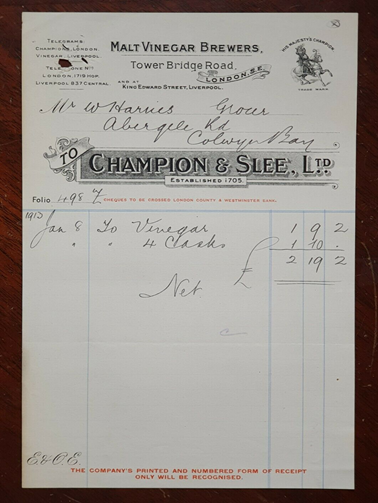 TELEGRAMS:
CHAMPION, LONDON.
VINEGAR, LIVERPOOL.
TELEPHONE Nos
LONDON, 1718 HOP.
LIVERPOOL 837 CENTRAL.
MALT VINEGAR BREWERS,
Tower Bridge Road,
LONDON, S.E.
AND AT
KING EDWARD STREET, LIVERPOOL.
HIS MAJESTY'S CHAMPION
TRADE MARK
Mr W Harries Grocer
Abergele Rd
Colwyn Bay
TO CHAMPION & SLEE, LTD.
ESTABLISHED 1705.
Folio 4987 CHEQUES TO BE CROSSED LONDON COUNTY & WESTMINSTER BANK.
1913
Jan 8 To Vinegar 1 9 2
" " 4 Casks 1 10 .
£ 2 19 2
Net
E&O.E.
THE COMPANY'S PRINTED AND NUMBERED FORM OF RECEIPT
ONLY WILL BE RECOGNISED.